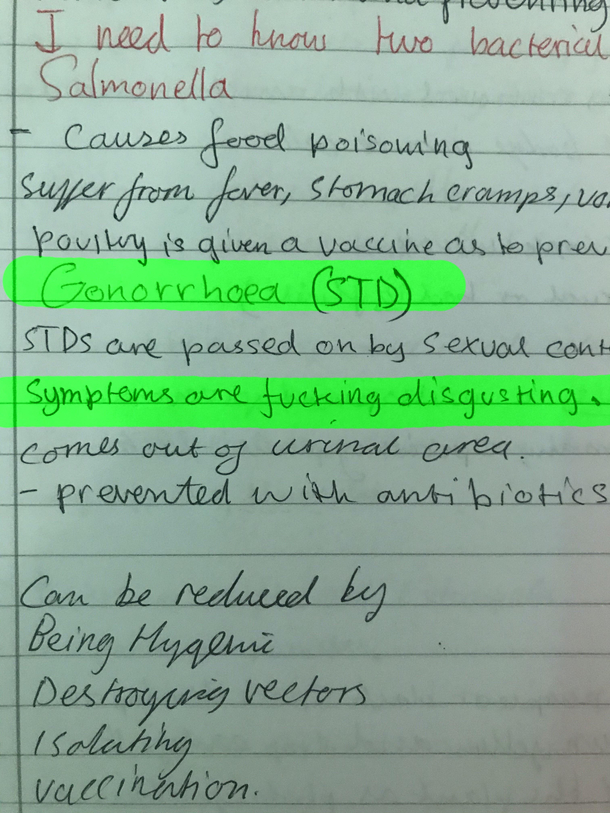 preventing
I need to know two bacterial
Salmonella
- Causes food poisoning
suffer from fever, stomach cramps, vo
poultry is given a vaccine as to prev
Gonorrhoea (STD)
STDs are passed on by sexual cont
Symptoms are fucking disgusting.
comes out of urinal area.
- prevented with antibiotics
Can be reduced by
Being Hygenic
Destroying vectors
Isolating
vaccination.